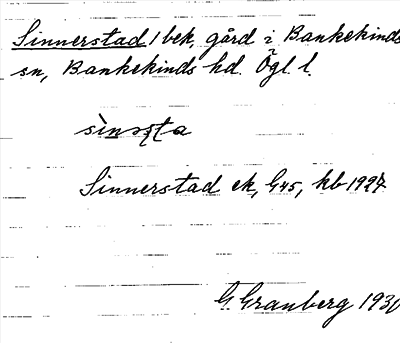 Sinnerstad / bek, gård i Bankekinds
sn, Bankekinds hd. Ögl. l.
Sinnerstad ek, G45, kb 1927
G. Granberg 1930